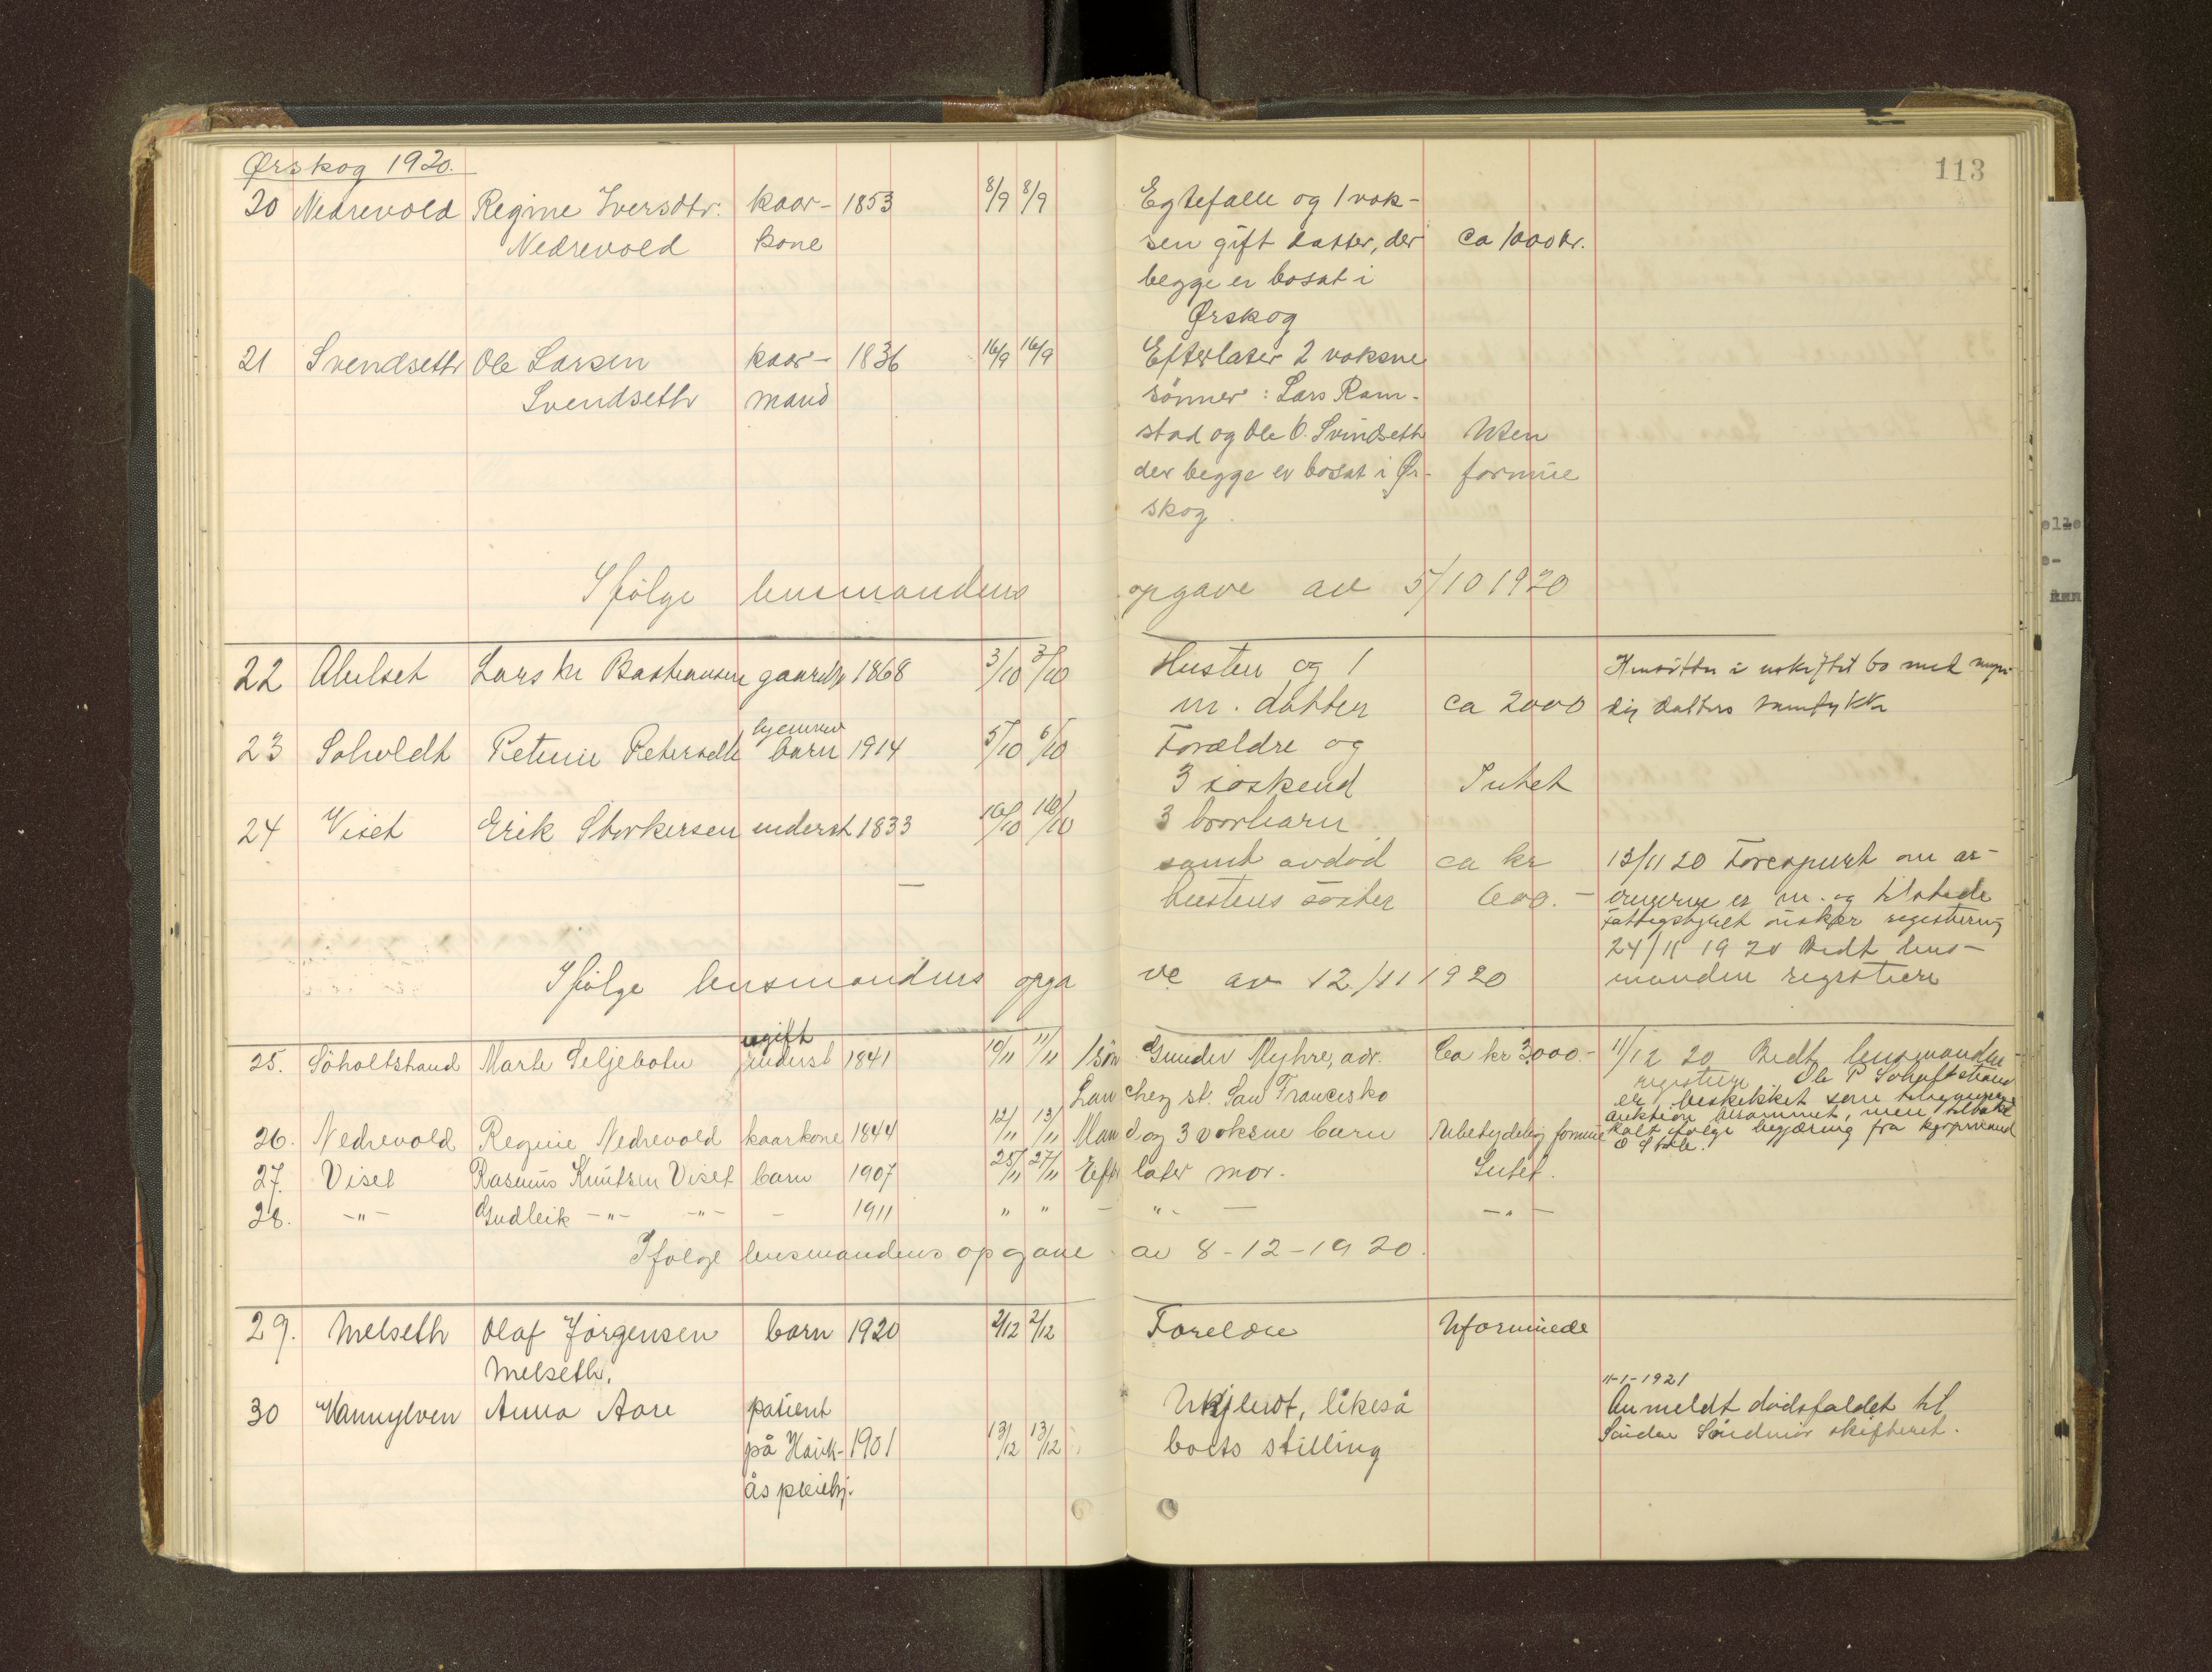 Ørskog 1920.
113
20 Nedrevold Regine Iversdtr. kaar- 1853 8/9 8/9 Egtefalle og 1 vok-
Nedrevold kone sen gift datter, der ca 1000 kr.
begge er bosat i
Ørskog
21 Svendseth Ole Larsen kaar- 1836 16/9 16/9 Efterlater 2 voksne
Svendseth mand sönner: Lars Ram-
stad og Ole O. Svindseth Uten
der begge er bosat i Ør- formue
skog.
Ifölge lensmandens opgave av 5/10 1920
22 Abelset Lars Kr Bastiansen gaardbr 1868 3/10 3/10 Hustru og 1
m. datter ca 2000
Hensitter i uskiftet bo med myn-
dig datters samtykke
23 Soholdt Petrine Petersdtr hjemmev barn 1914 5/10 6/10 Forældre og
3 söskend Intet
24 Viset Erik Storkersen inderst 1833 16/10 16/10 3 brorbarn
samt avdød ca kr
hustrus söster 600.-
13/11 20 Forespurt om ar-
vingerne er m. og tilstede
Fattigstyret önsker registrering
24/11 1920 Bedt lens-
manden registrere
Ifölge lensmandens opgave av 12/11 1920
25. Söholtstrand Marte Seljebotn ugift inderst 1841 10/11 11/11 1 sön Gunder Myhre, adr. Ca kr 3000.-
San chez st. San Francisko
11/12 20 Bedt lensmanden
registrere Ole P Soholtstrand
er beskikket som
auktion berammet, men tilbake
kalt ifolge begjæring fra
26. Nedrevold Regine Nedrevold kaarkone 1844 12/11 13/11 Mand og 3 voksne barn Ubetydelig formue
27. Viset Rasmus Knutsen Viset barn 1907 25/11 27/11 Efterlater mor. Intet.
28. -"- Gudleik -"- -"- - 1911 " " - "- - -"-
Ifolge lensmandens opgave av 8-12-1920.
29. Melseth Olaf Jörgensen barn 1920 2/12 2/12 Foreldre Uformuede
Melseth.
30 Vannylven Anna Aare patient Ukjendt, likeså
på Hauk- 1901 13/12 13/12 boets stilling
ås pleiehj.
11-1-1921
Anmeldt dödsfaldet til
Söndre Söndmör skifteret.